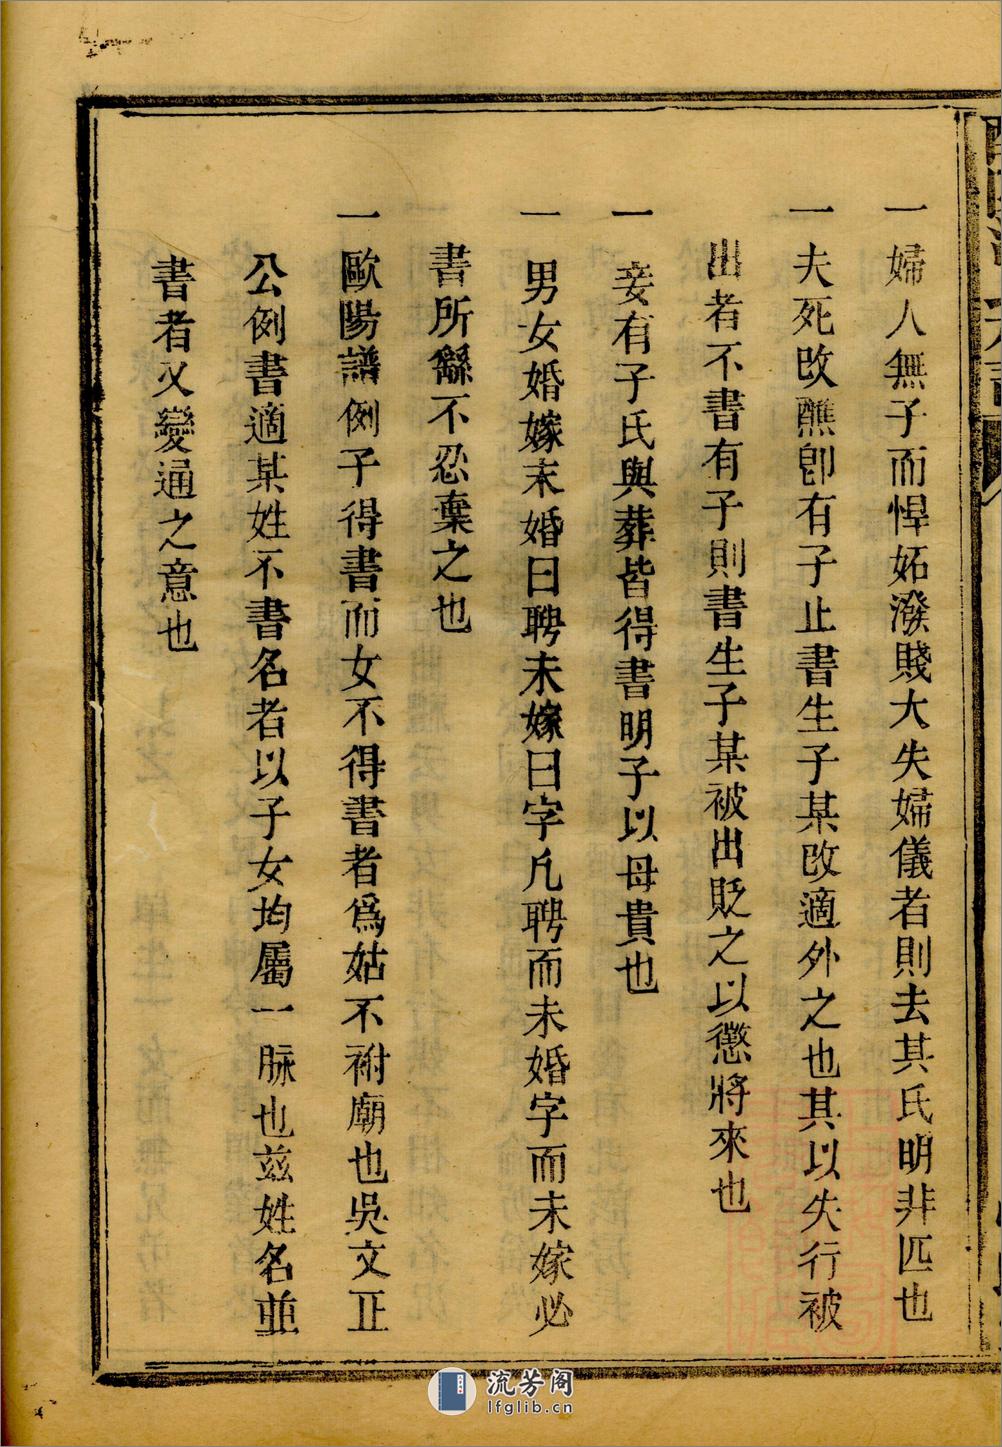 一婦人無子而悍妬潑賤大失婦儀者則去其氏明非匹也
一夫死改醮卽有子止書生子某改適外之也其以失行被
出者不書有子則書生子某被出貶之以懲將來也
一妾有子氏與葬皆得書明子以母貴也
一男女婚嫁末婚曰聘未嫁曰字凡聘而未婚字而未嫁必
書所繇不忍棄之也
一歐陽譜例子得書而女不得書者爲姑不祔廟也吳文正
公例書適某姓不書名者以子女均屬一脉也兹姓名並
書者又變通之意也
流芳阁
lfglib.cn